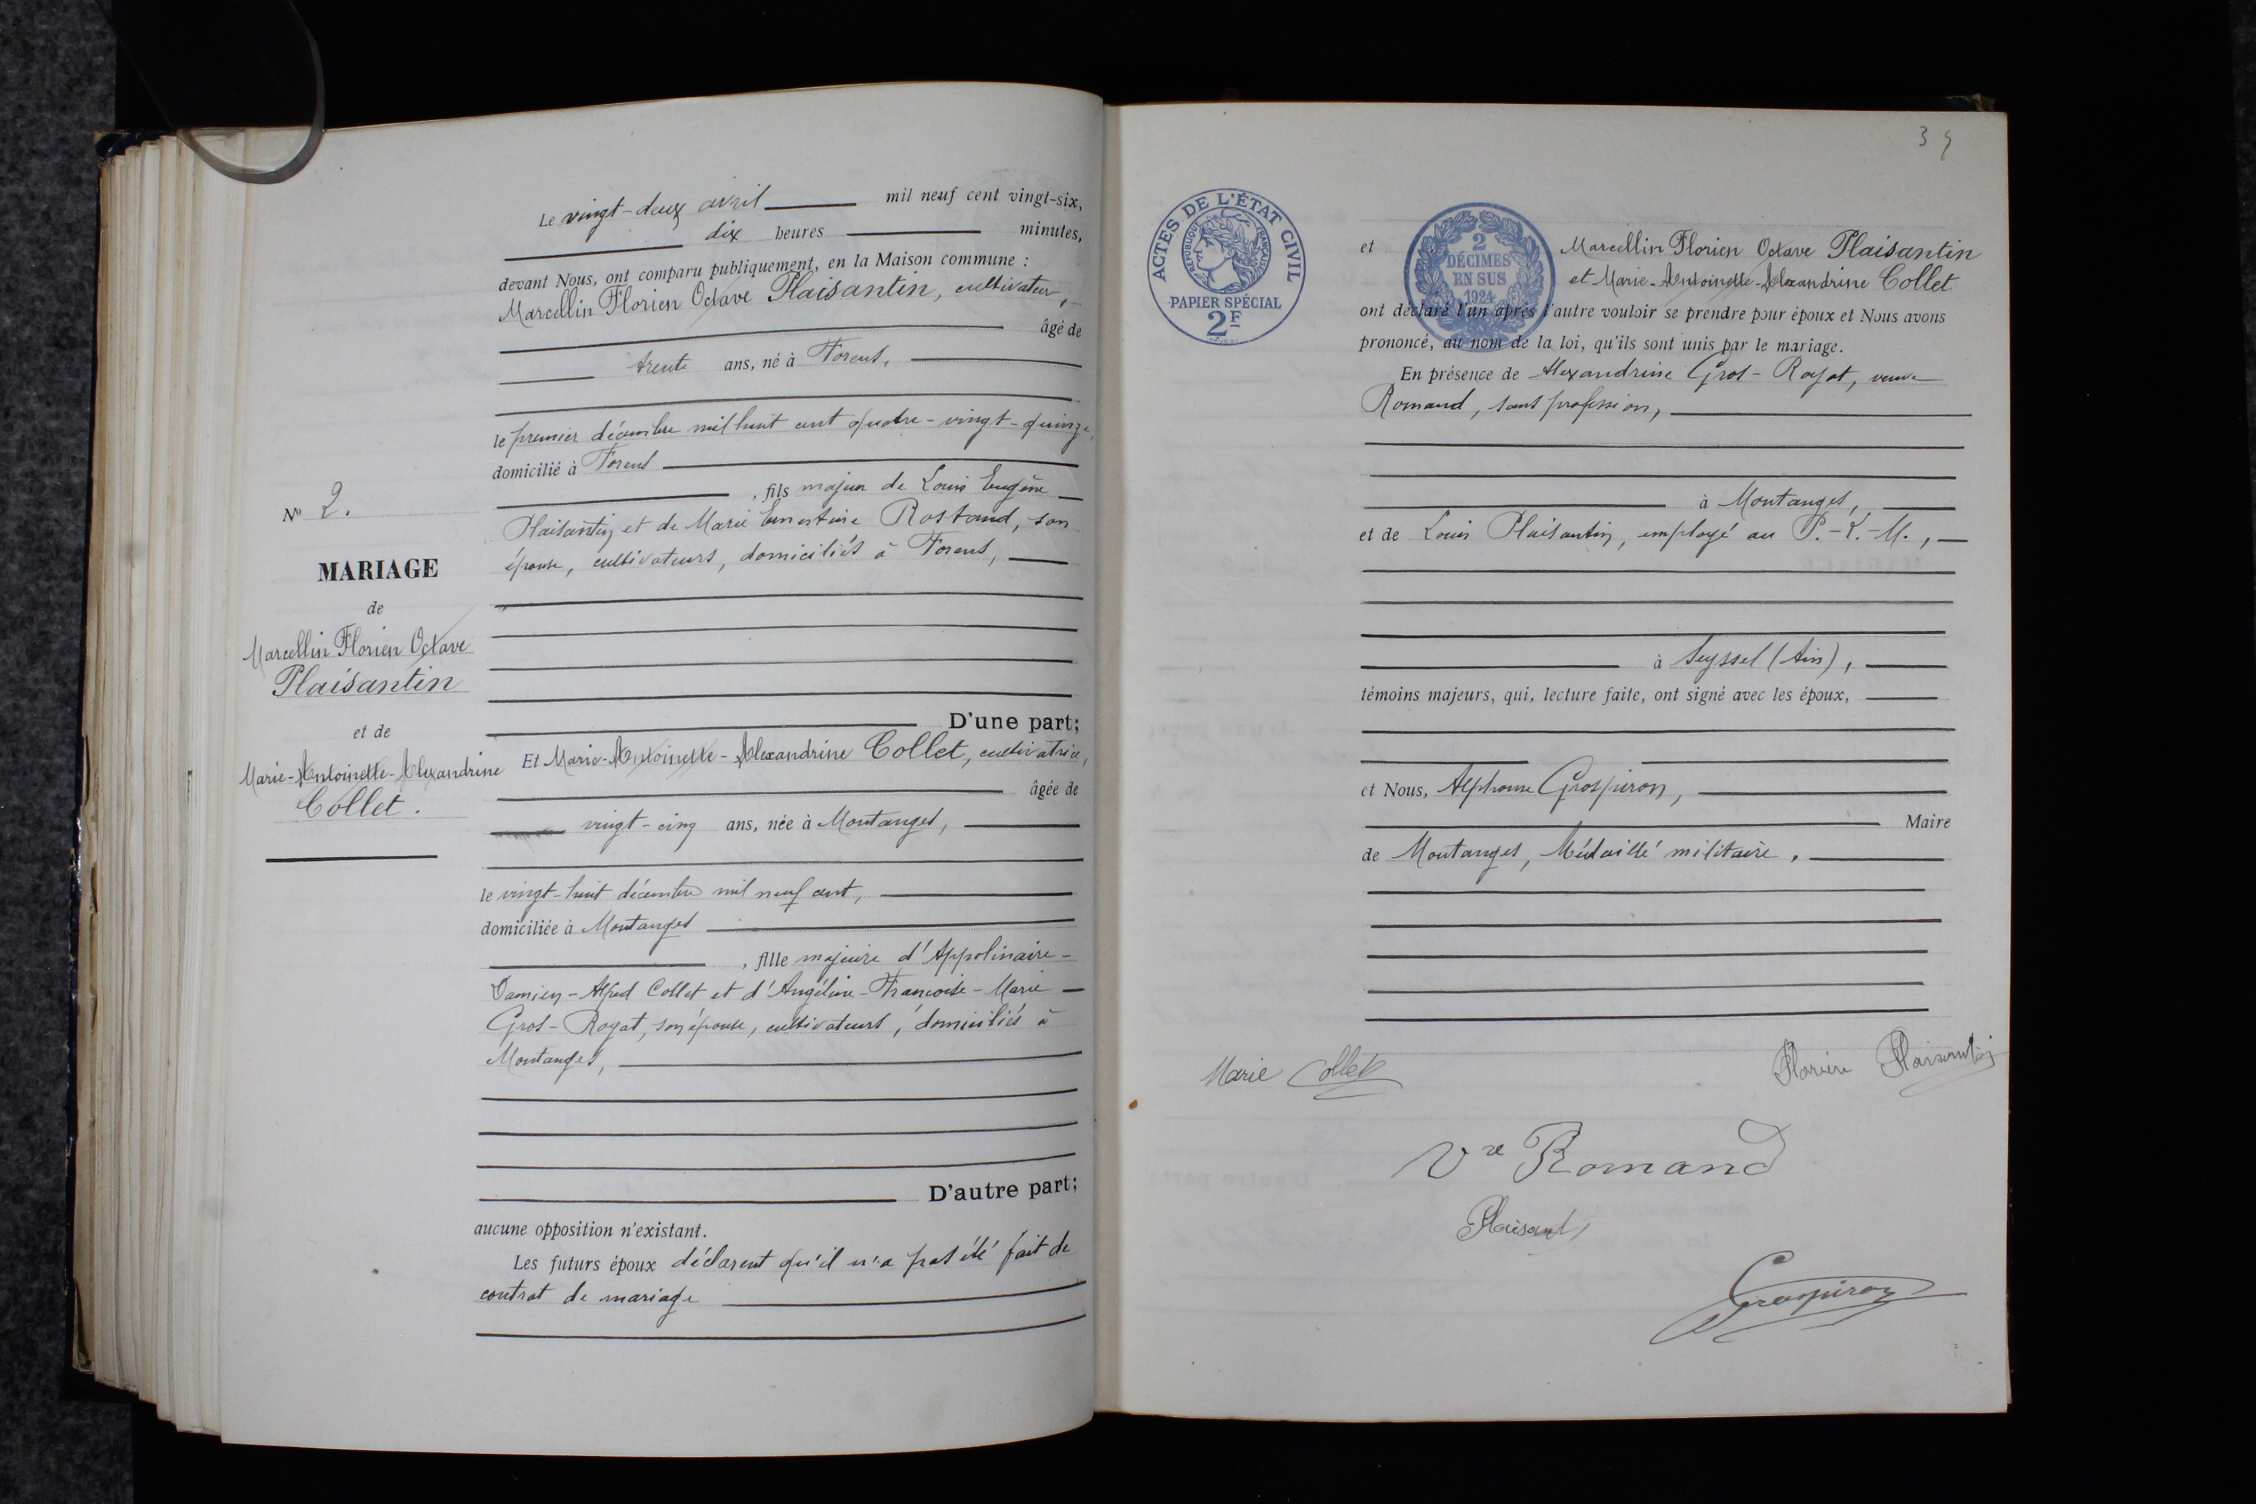 Le vingt-deux avril mil neuf cent vingt-six,
dix heures minutes,
devant Nous, ont comparu publiquement, en la Maison commune :
Marcellin Florien Octave Plaisantin, cultivateur,
âgé de
trente ans, né à Forens,
le premier décembre mil huit cent quatre-vingt-quinze,
domicilié à Forens
, fils majeur de Louis Eugène
Plaisantin et de Marie Ernestine Rostand, son
épouse, cultivateurs, domiciliés à Forens,
D'une part;
Et Marie-Antoinette-Alexandrine Collet, cultivatrice,
âgée de
vingt-cinq ans, née à Montanges,
le vingt-huit décembre mil neuf cent,
domiciliée à Montanges
, fille majeure d'Appolinaire-
Damien-Alfred Collet et d'Angéline-Françoise-Marie
Gros-Royat, son épouse, cultivateurs, domiciliés à
Montanges,
D'autre part;
aucune opposition n'existant.
Les futurs époux déclarent qu'il n'a pas été fait de
contrat de mariage
N° 2.
MARIAGE
de
Marcellin Florien Octave
Plaisantin
et de
Marie-Antoinette-Alexandrine
Collet.
39
ACTES DE L'ÉTAT CIVIL
RÉPUBLIQUE FRANÇAISE
PAPIER SPÉCIAL
2F
2
DÉCIMES
EN SUS
1924
et Marcellin Florien Octave Plaisantin
et Marie-Antoinette-Alexandrine Collet
ont déclaré l'un après l'autre vouloir se prendre pour époux et Nous avons
prononcé, au nom de la loi, qu'ils sont unis par le mariage.
En présence de Alexandrine Gros-Royat, veuve
Romand, sans profession,
à Montanges,
et de Louis Plaisantin, employé au P.-L.-M.,
à Seyssel (Ain),
témoins majeurs, qui, lecture faite, ont signé avec les époux,
et Nous, Alphonse Grospiron,
Maire
de Montanges, Médaillé militaire.
Marie Collet
Florien Plaisantin
Vve Romand
Plaisantin
Grospiron